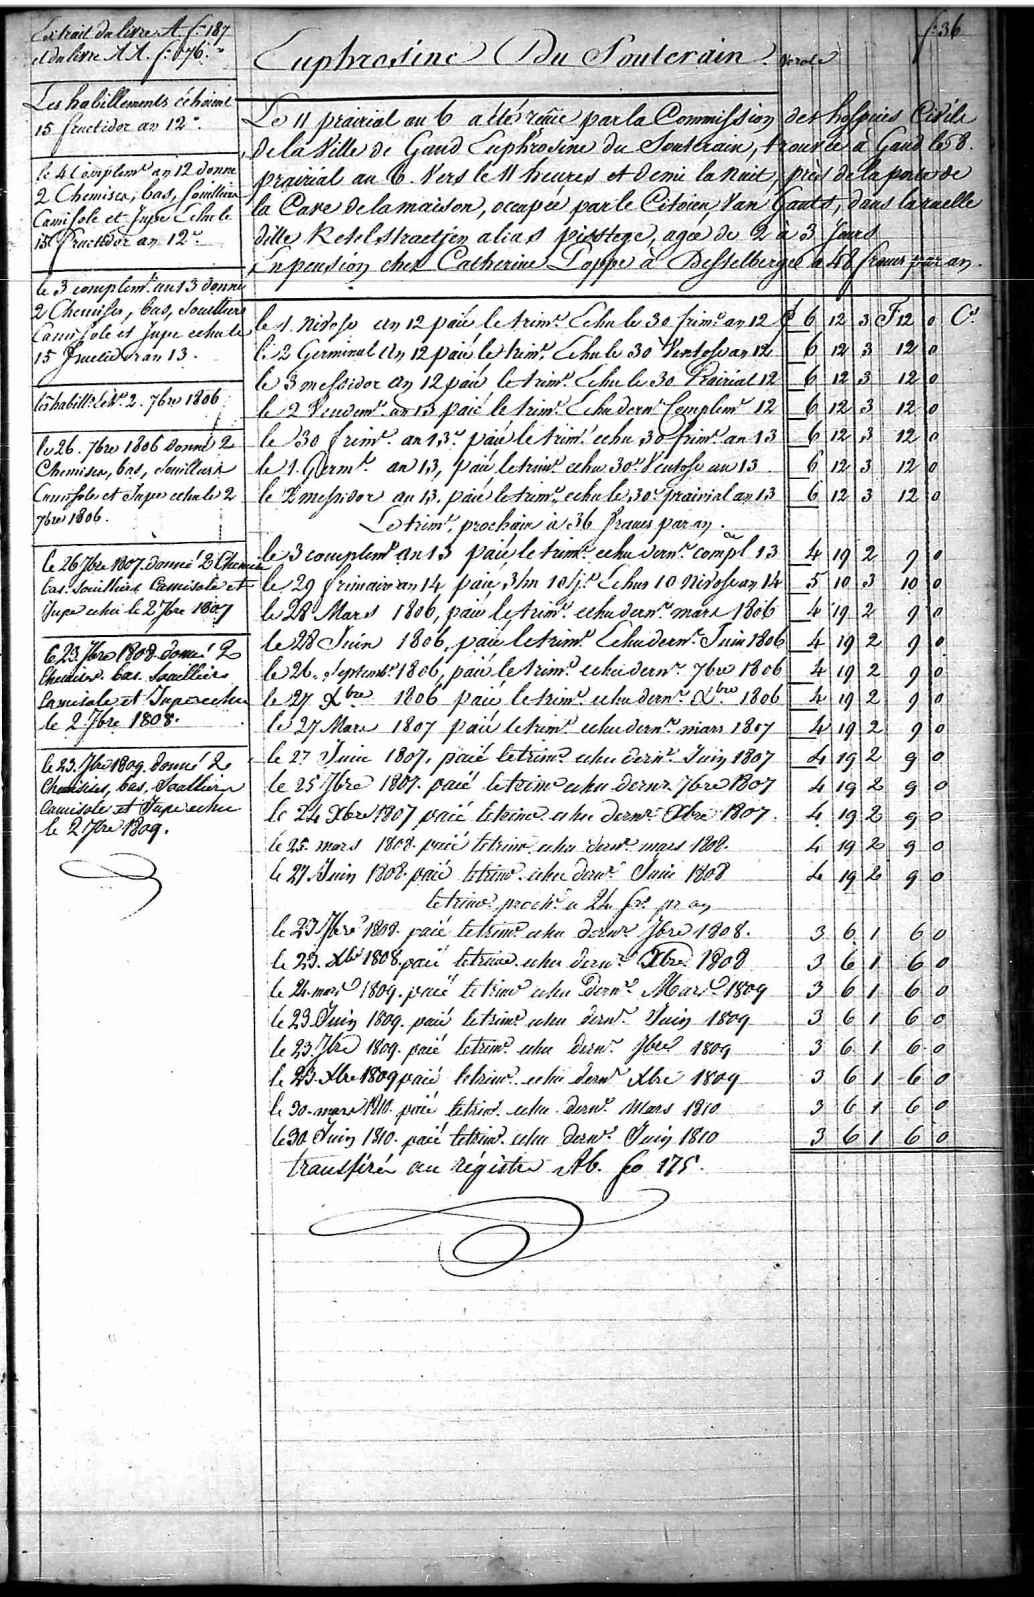 f: 36
Extrait du livre A f: 187
et du livre AA. f: 076.
Les habillements échoient
15 fructidor an 12e.
le 4 Complemt. an 12 donne
2 Chemises, bas, souilliers
Camisole et Jupe Echu le
15 Fructidor an 12e.
le 3 complemt. an 13 donne
2 Chemises, bas, souilliers
Camisole et Jupe echu le
15 Fructidor an 13.
2. 7bre 1806
le 26. 7bre 1806 donné 2
Chemises, bas, Souilliers
Camisole et Jupe echu le 2
7bre 1806.
le 26 7bre 1807. donné 2 Chemis
bas. Souilliers Camisole et
Jupe echu le 2 7bre 1807
le 23 7bre 1808 donné 2
Chemises. bas. Souilliers
Camisole et Jupe echu
le 2 7bre 1808.
le 23. 7bre 1809. donné 2
Chemises, bas, Souilliers
Camisole et Jupe echu
le 2 7bre 1809.
Euphrosine Du Souterain
Le 11 prairial an 6 a été reçue par la Commission des hospices Civils
de la Ville de Gand Euphrosine du Souterain, trouvée à Gand le 8.
prairial an 6. Vers le 11 heures et demie la nuit, près de la porte de
la Cave de la maison, occupée par le Citoien Van Gando, dans la ruelle
ditte Ketelstraetjen alias pisstege, agée de 2 à 3 Jours
En pension chez Catherine Loppe a Desselberge a 48 francs par an.
le 1. Nivose an 12 paié le trimt. Echu le 30 frimre. an 12 £ 6 12 3 F 12 0 Cs.
le 2 Germinal an 12 paié le trimt. Echu le 30 Ventose an 12 6 12 3 12 0
le 3 messidor an 12 paié le trimt. Echu le 30 Prairial 12 6 12 3 12 0
le 2 Vendemre. an 13 paié le trimt. Echu dernr. Complemt. 12 6 12 3 12 0
le 30 frimre. an 13e. paié le trimt. echu 30 frimre. an 13 6 12 3 12 0
le 1. Germl. an 13, paié, le trimt. echu 30e. Ventose an 13 6 12 3 12 0
le 2 messidor an 13. paié le trimt. echu le 30e. prairial an 13 6 12 3 12 0
Le trimt. prochain à 36 francs par an.
le 3 complemt. an 13 paié le trimt. echu dernr. compl. 13 4 19 2 9 0
le 29 frimaire an 14 paié, 3/m 10/js. Echu 10 Nivose an 14 5 10 3 10 0
le 28 Mars 1806, paié le trimt. echu dernr. mars 1806 4 19 2 9 0
le 28 Juin 1806, paié le trimt. Echu dernr. Juin 1806 4 19 2 9 0
le 26. Septembr. 1806, paié le trimt. echu dernr. 7bre 1806 4 19 2 9 0
le 27 Xbre 1806 paié le trimt. echu dernr. Xbre 1806 4 19 2 9 0
le 27 Mars 1807 paié le trimt. echu dernr. mars 1807 4 19 2 9 0
le 27 Juin 1807. paié le trimt. echu dernr. Juin 1807 4 19 2 9 0
le 25 7bre 1807. paié le trimt. echu dernr. 7bre 1807 4 19 2 9 0
le 24 Xbre 1807 paié le trimt. echu dernr. Xbre 1807. 4 19 2 9 0
le 25. mars 1808. paié le trimt. echu dernr. mars 1808. 4 19 2 9 0
le 27. Juin 1808. paié le trimt. echu dernr. Juin 1808 4 19 2 9 0
le trimt. proch. a 24 frs. pr an
le 23 7bre 1808. paié le trimt. echu dernr. 7bre 1808. 3 6 1 6 0
le 23. Xbre 1808 paié le trimt. echu dernr. Xbre 1808 3 6 1 6 0
le 24. mars 1809. paié le trimt. echu dernr. Mars 1809 3 6 1 6 0
le 23. Juin 1809. paié le trimt. echu dernr. Juin 1809 3 6 1 6 0
le 23. 7bre 1809. paié le trimt. echu dernr. 7bre 1809 3 6 1 6 0
le 23. Xbre 1809 paié le trimt. echu dernr. Xbre 1809 3 6 1 6 0
le 30. mars 1810. paié le trimt. echu dernr. Mars 1810 3 6 1 6 0
le 30 Juin 1810. paié le trimt. echu dernr. Juin 1810 3 6 1 6 0
transférée au régistre Ab. fo 175.